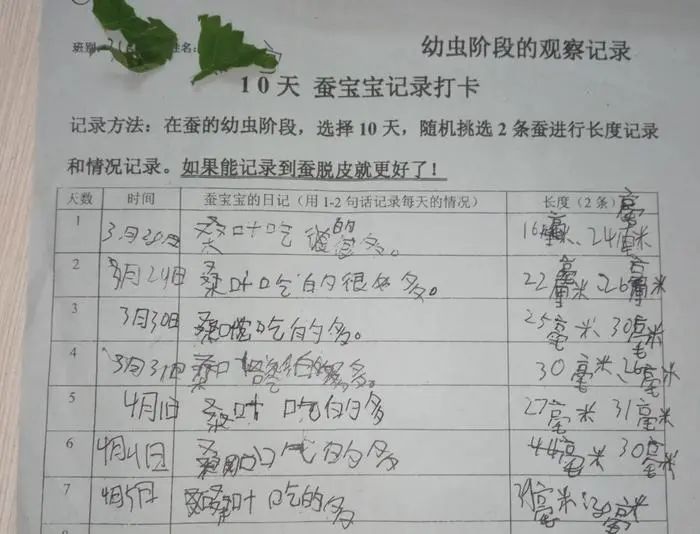 班别: 3( 姓名:
幼虫阶段的观察记录
10天 蚕宝宝记录打卡
记录方法：在蚕的幼虫阶段，选择 10 天，随机挑选 2 条蚕进行长度记录
和情况记录。如果能记录到蚕脱皮就更好了！
天数 时间 蚕宝宝的日记（用 1-2 句话记录每天的情况） 长度（2 条）
1 3月20日 桑叶吃的很多。 16毫米、24毫米
2 3月29日 桑叶吃的很多。 22毫米、26毫米
3 3月30日 桑 吃的多。 25毫米、30毫米
4 3月31日 桑 多。 30毫米、26毫米
5 4月1日 桑叶吃的多 27毫米 31毫米
6 4月4日 桑 吃的多 44毫米 30毫米
7 4月5日 桑叶吃的多 毫米 30毫米